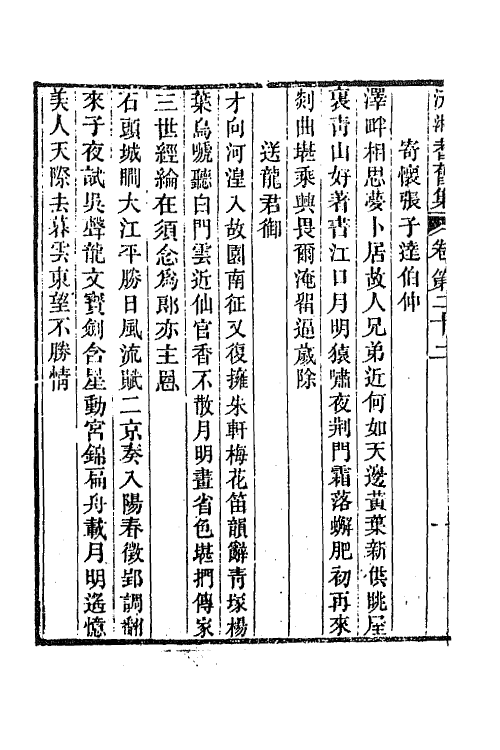 沅湘耆舊集　卷第二十二
寄懷張子達伯仲
澤畔相思夢卜居故人兄弟近何如天邊黃葉新供眺屋
裏靑山好著書江口月明猿嘯夜荆門霜落蠏肥初再來
剡曲堪乘興畏爾淹留逼歲除
送龍君御
才向河湟入故園南征又復擁朱軒梅花笛韻辭靑塚楊
葉烏號聽白門雲近仙官香不散月明畫省色堪捫傳家
三世經綸在須念爲郎亦主恩
石頭城闊大江平勝日風流賦二京奏入陽春徵郢調翻
來子夜試吳聲龍文寶劍含星動宮錦扁舟載月明遙憶
美人天際去暮雲東望不勝情